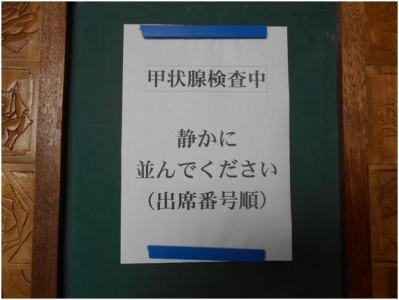 甲状腺検査中
静かに
並んでください
（出席番号順）